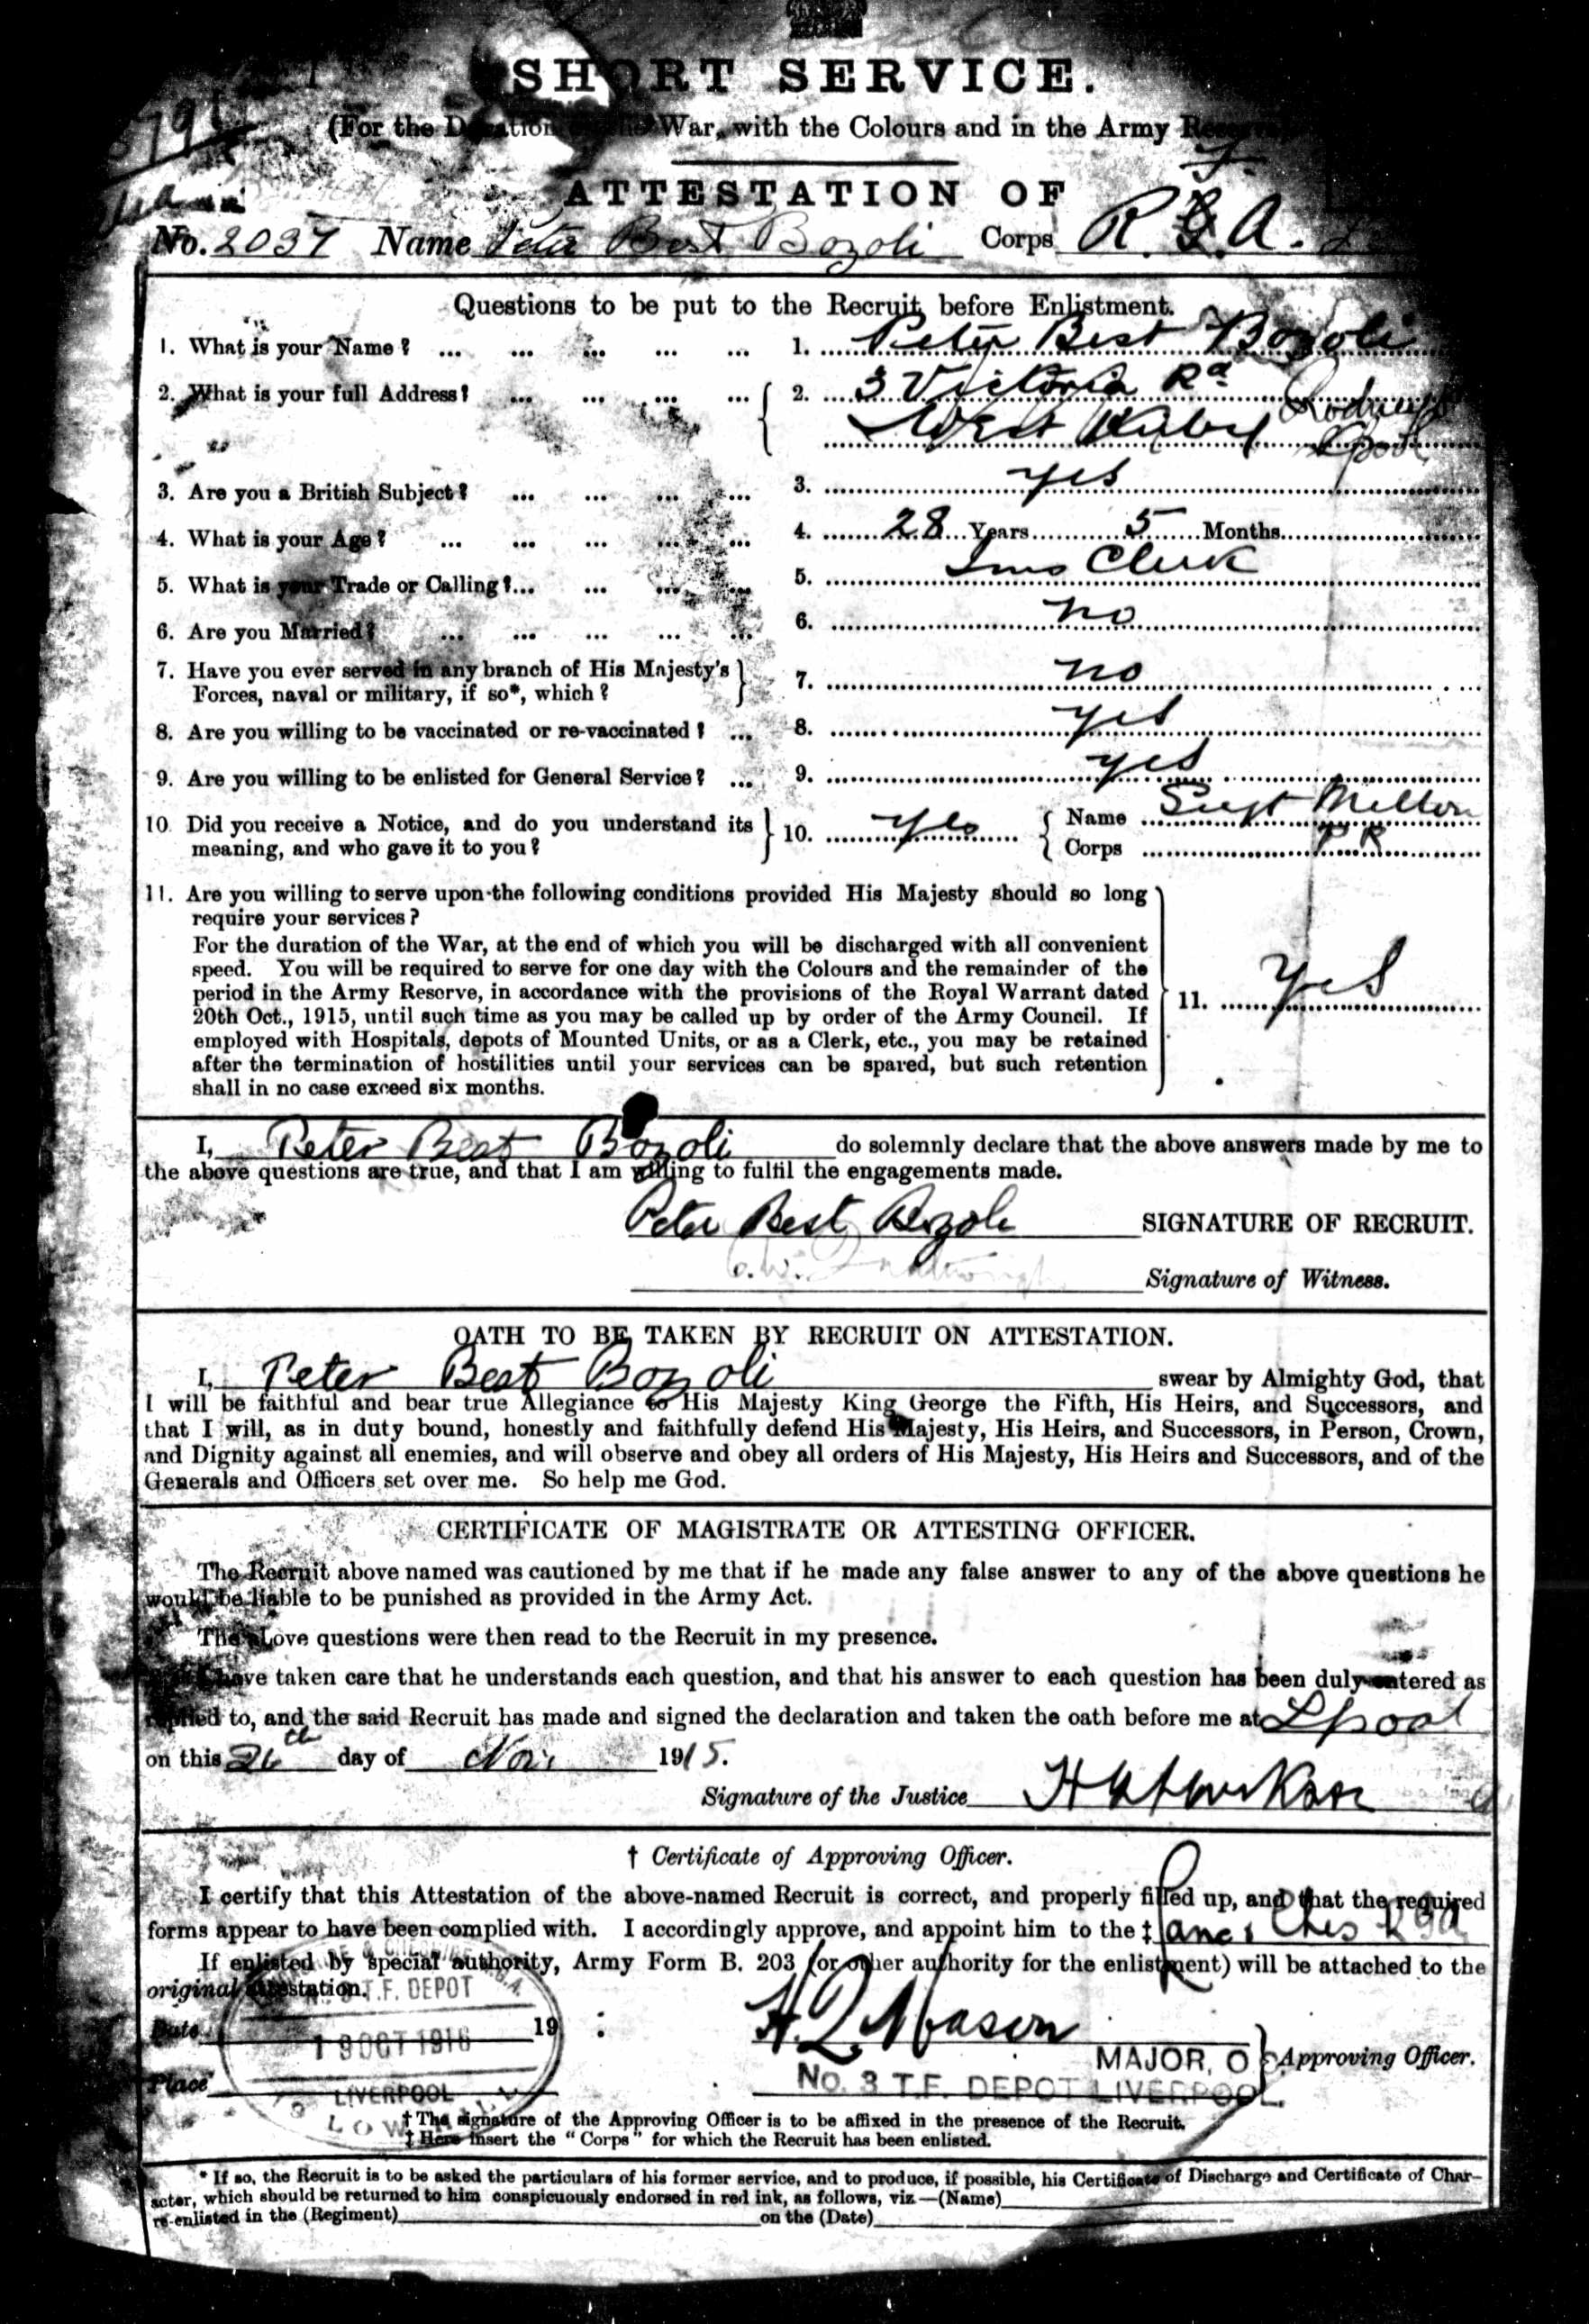 SHORT SERVICE.
(For the Duration of the War, with the Colours and in the Army Reserve
ATTESTATION OF
No. 2037 Name Peter Best Bozoli Corps R.G.A.
Questions to be put to the Recruit before Enlistment.
1. What is your Name? ... ... ... ... ... 1. Peter Best Bozoli
2. What is your full Address? ... ... ... ... 2. 3 Victoria Rd
West Kirby
3. Are you a British Subject? ... ... ... ... 3. yes
4. What is your Age? ... ... ... ... ... 4. 28 Years 5 Months
5. What is your Trade or Calling?... ... ... ... 5. Ins Clerk
6. Are you Married? ... ... ... ... ... 6. no
7. Have you ever served in any branch of His Majesty's
Forces, naval or military, if so*, which? 7. no
8. Are you willing to be vaccinated or re-vaccinated? ... 8. yes
9. Are you willing to be enlisted for General Service? ... 9. yes
10. Did you receive a Notice, and do you understand its
meaning, and who gave it to you? 10. yes Name
Corps
11. Are you willing to serve upon the following conditions provided His Majesty should so long
require your services?
For the duration of the War, at the end of which you will be discharged with all convenient
speed. You will be required to serve for one day with the Colours and the remainder of the
period in the Army Reserve, in accordance with the provisions of the Royal Warrant dated
20th Oct., 1915, until such time as you may be called up by order of the Army Council. If
employed with Hospitals, depots of Mounted Units, or as a Clerk, etc., you may be retained
after the termination of hostilities until your services can be spared, but such retention
shall in no case exceed six months.
11. yes
I, Peter Best Bozoli do solemnly declare that the above answers made by me to
the above questions are true, and that I am willing to fulfil the engagements made.
Peter Best Bozoli SIGNATURE OF RECRUIT.
Signature of Witness.
OATH TO BE TAKEN BY RECRUIT ON ATTESTATION.
I, Peter Best Bozoli swear by Almighty God, that
I will be faithful and bear true Allegiance to His Majesty King George the Fifth, His Heirs, and Successors, and
that I will, as in duty bound, honestly and faithfully defend His Majesty, His Heirs, and Successors, in Person, Crown,
and Dignity against all enemies, and will observe and obey all orders of His Majesty, His Heirs and Successors, and of the
Generals and Officers set over me. So help me God.
CERTIFICATE OF MAGISTRATE OR ATTESTING OFFICER.
The Recruit above named was cautioned by me that if he made any false answer to any of the above questions he
would be liable to be punished as provided in the Army Act.
The above questions were then read to the Recruit in my presence.
I have taken care that he understands each question, and that his answer to each question has been duly entered as
replied to, and the said Recruit has made and signed the declaration and taken the oath before me at Lpool
on this 26th day of Nov. 1915.
Signature of the Justice
† Certificate of Approving Officer.
I certify that this Attestation of the above-named Recruit is correct, and properly filled up, and that the required
forms appear to have been complied with. I accordingly approve, and appoint him to the ‡ Lancs & Ches RGA
If enlisted by special authority, Army Form B. 203 (or other authority for the enlistment) will be attached to the
original attestation.
T.F. DEPOT
Date 19
19 OCT 1916
H. Q. Mason
MAJOR, O Approving Officer.
Place
LIVERPOOL
No. 3 T.F. DEPOT LIVERPOOL.
† The signature of the Approving Officer is to be affixed in the presence of the Recruit.
‡ Here insert the "Corps" for which the Recruit has been enlisted.
* If so, the Recruit is to be asked the particulars of his former service, and to produce, if possible, his Certificate of Discharge and Certificate of Char-
acter, which should be returned to him conspicuously endorsed in red ink, as follows, viz.—(Name)
re-enlisted in the (Regiment) on the (Date)